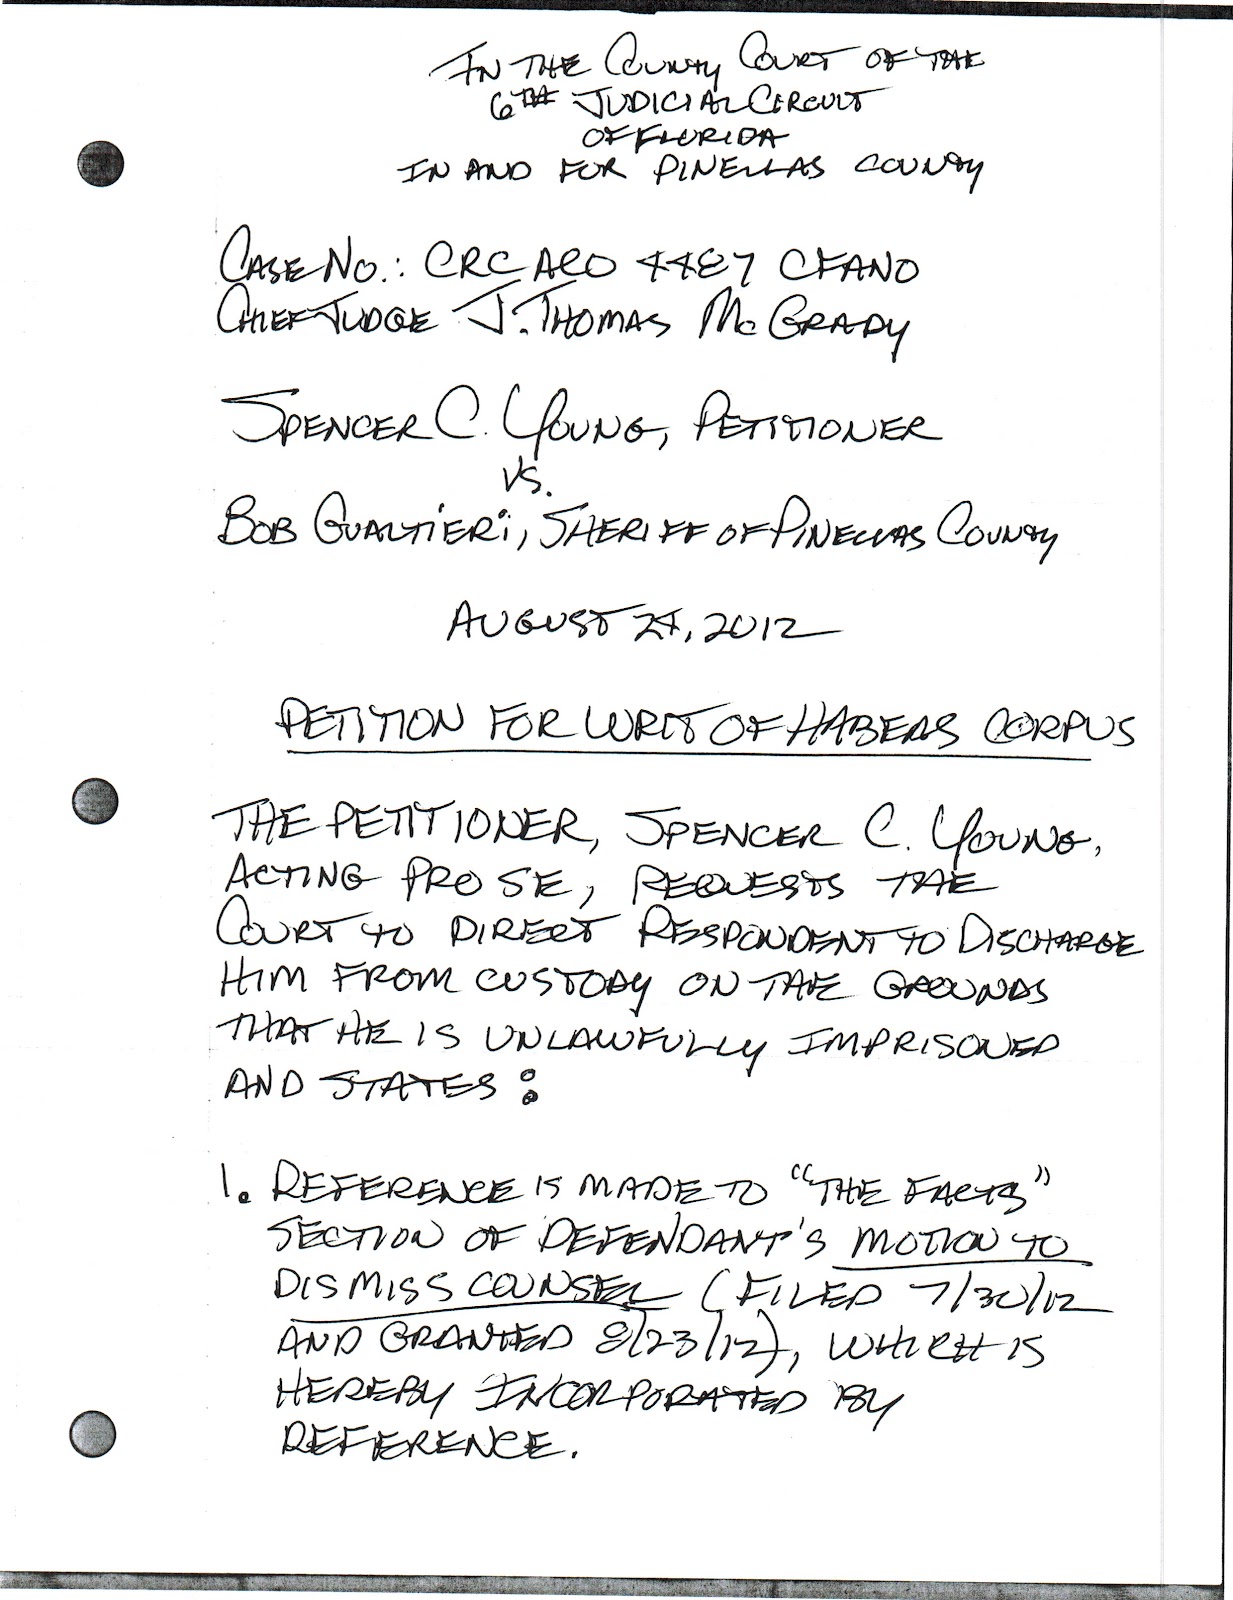 IN THE COUNTY COURT OF THE
6TH JUDICIAL CIRCUIT
OF FLORIDA
IN AND FOR PINELLAS COUNTY
CASE NO.: CRC ACO 4487 CFANO
CHIEF JUDGE J. THOMAS McGRADY
SPENCER C. YOUNG, PETITIONER
VS.
BOB GUALTIERI, SHERIFF OF PINELLAS COUNTY
AUGUST 24, 2012
PETITION FOR WRIT OF HABEAS CORPUS
THE PETITIONER, SPENCER C. YOUNG,
ACTING PRO SE, REQUESTS THE
COURT TO DIRECT RESPONDENT TO DISCHARGE
HIM FROM CUSTODY ON THE GROUNDS
THAT HE IS UNLAWFULLY IMPRISONED
AND STATES:
1. REFERENCE IS MADE TO "THE FACTS"
SECTION OF DEFENDANT'S MOTION TO
DISMISS COUNSEL (FILED 7/30/12
AND GRANTED 8/23/12), WHICH IS
HEREBY INCORPORATED BY
REFERENCE.